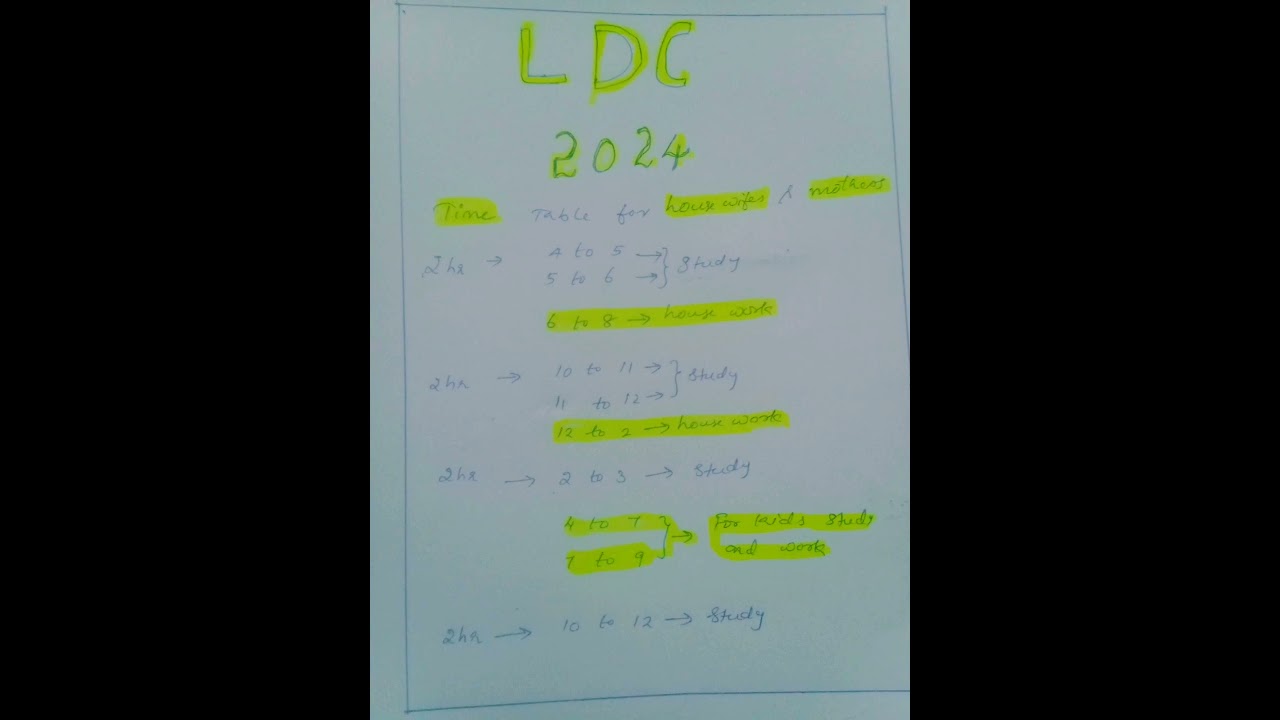 LDC
2024
Time Table for house wifes & mothers
2hr → 4 to 5 → } Study
5 to 6 →
6 to 8 → house work
2hr → 10 to 11 → } Study
11 to 12 →
12 to 2 → house work
2hr → 2 to 3 → Study
4 to 7 } → For kids study
7 to 9 and work
2hr → 10 to 12 → Study